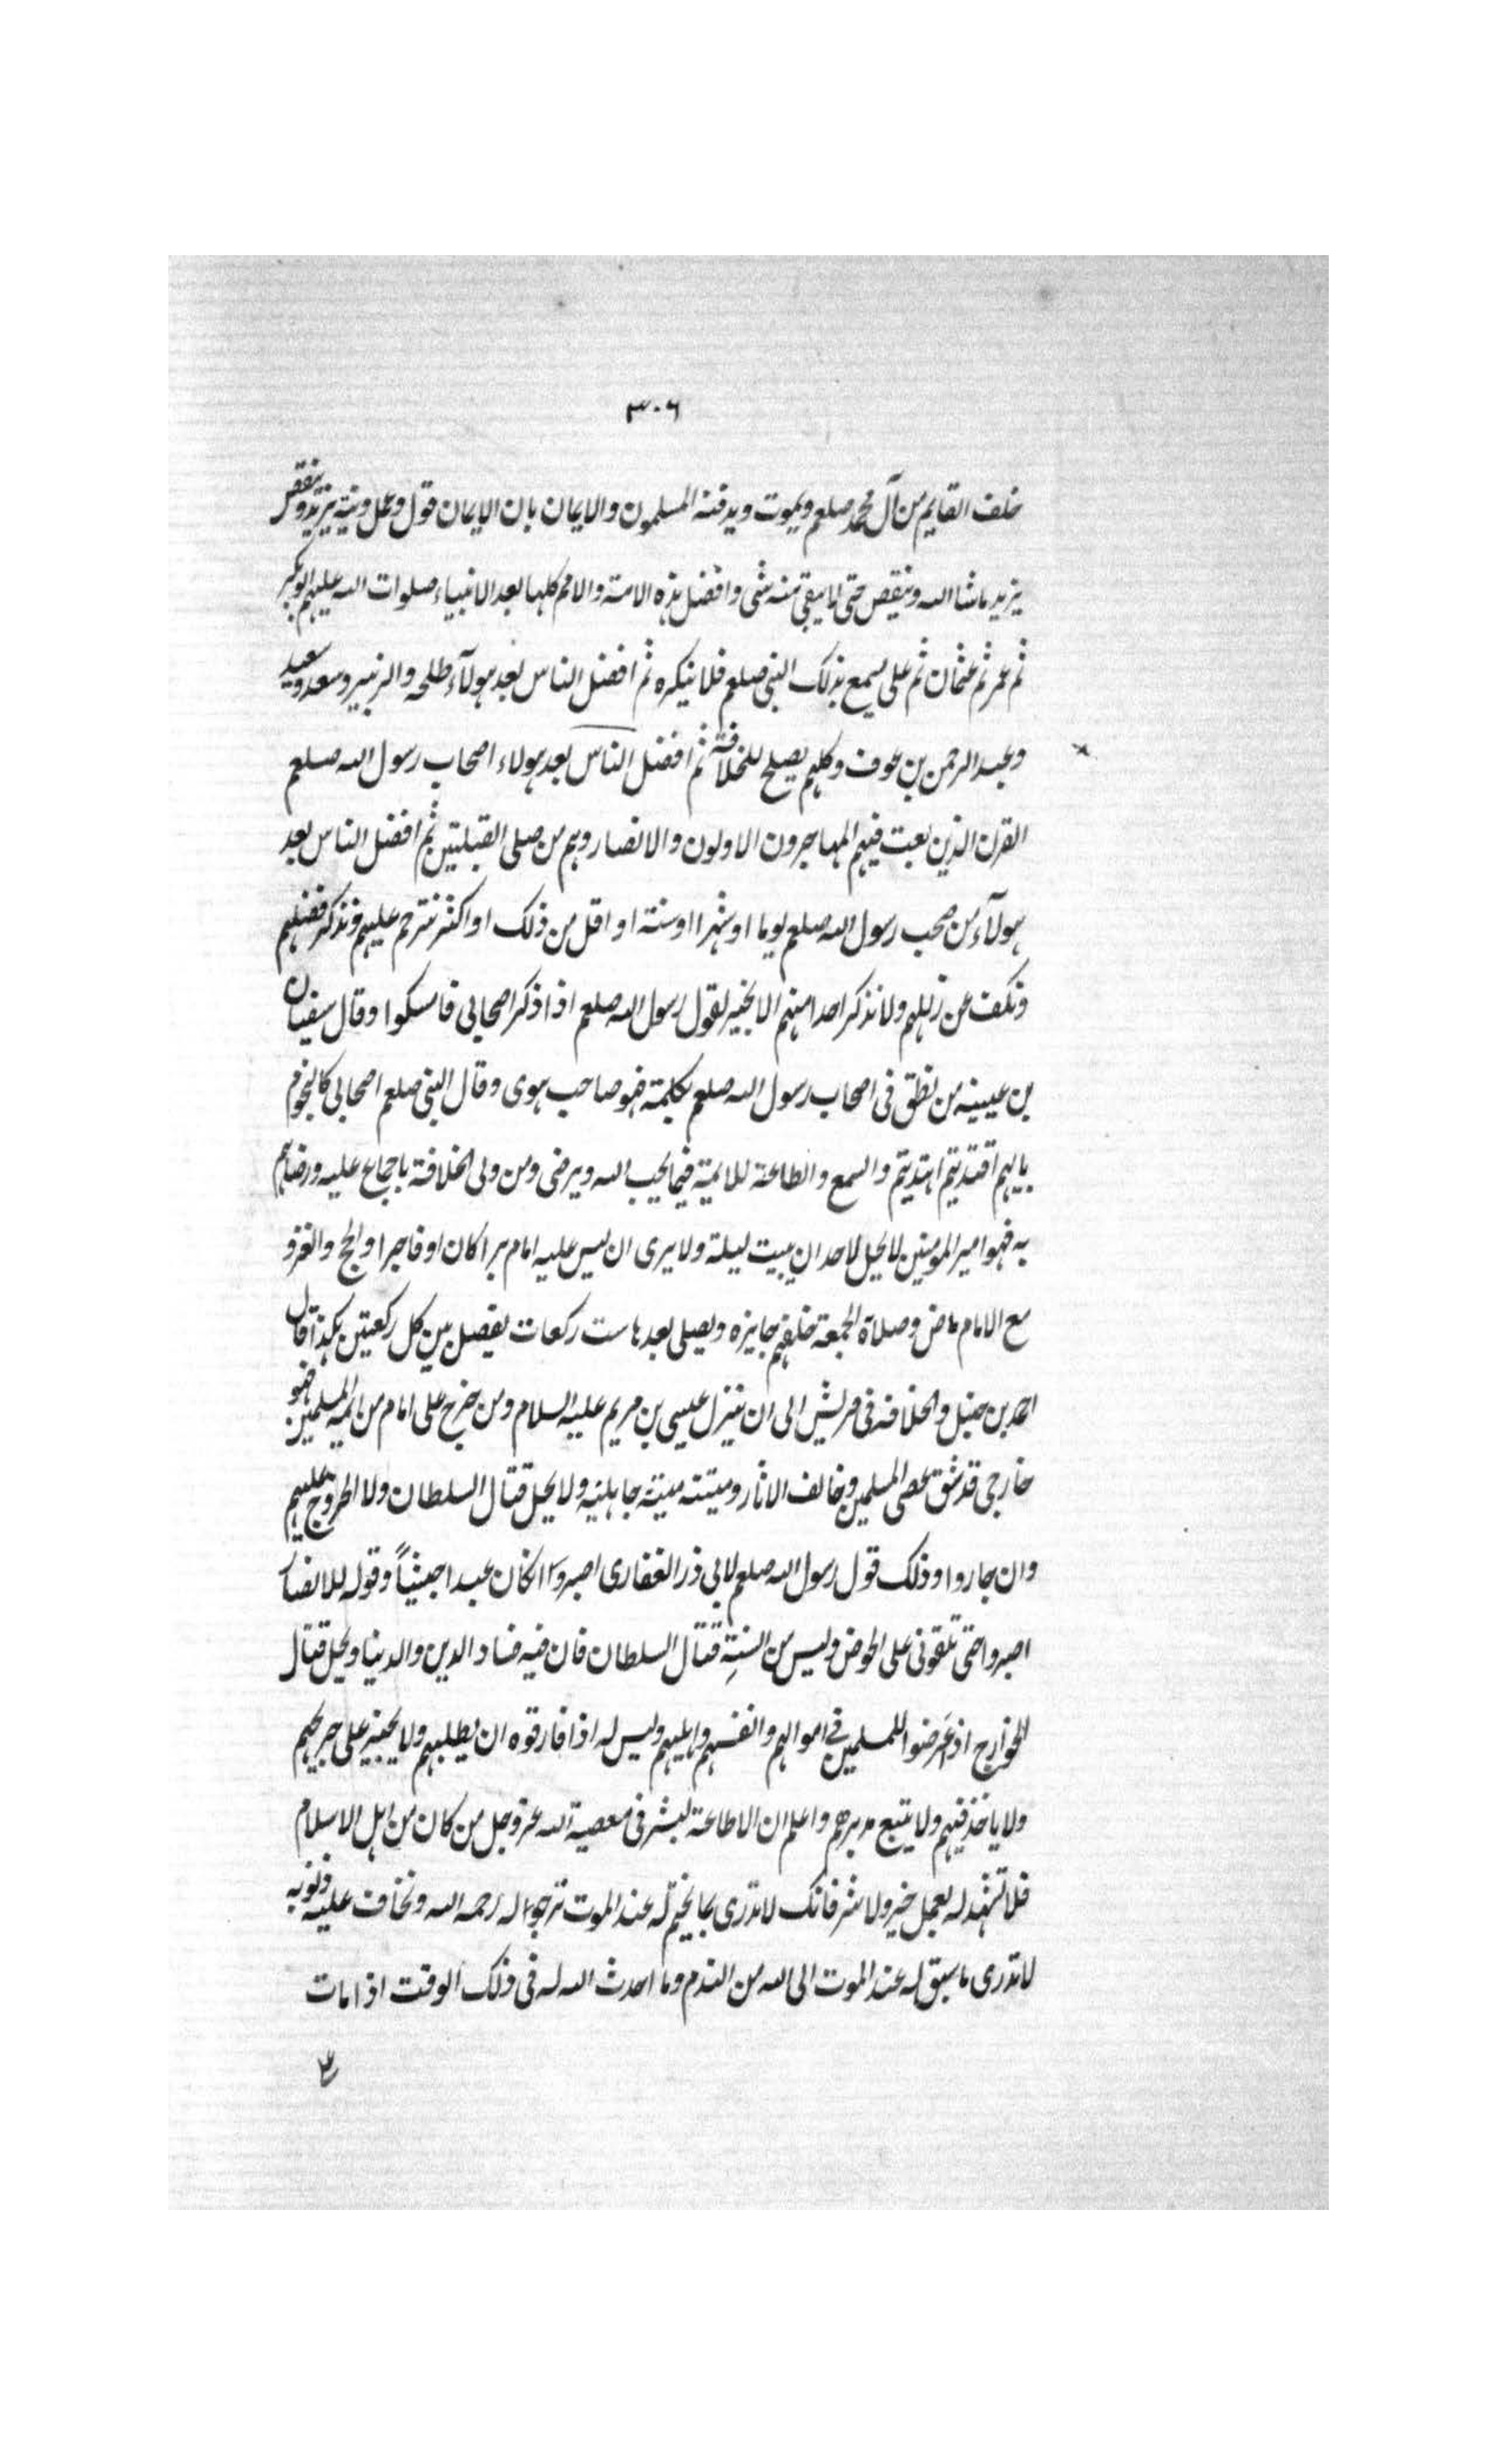 ٣٠٦
خلف القايم من آل محمد صلعم ويموت ويدفنه المسلمون والايمان بان الايمان قول وعمل ونية يزيد وينقص
يزيد ماشا الله وينقص حتى لا يبقى منه شى وافضل هذه الامة والامم كلها بعد الانبياء صلوات الله عليهم ابوبكر
ثم عمر ثم عثمان ثم على يسمع بذلك النبى صلعم فلا ينكره ثم افضل الناس بعد هولآء طلحه والزبير وسعد وسعيد
وعبد الرحمن بن عوف وكلهم يصلح للخلافة ثم افضل الناس بعد هولاء اصحاب رسول الله صلعم
القرن الذين بعث فيهم المهاجرون الاولون والانصار وهم من صلى القبلتين ثم افضل الناس بعد
هولآء من صحب رسول الله صلعم يوما او شهرا او سنة او اقل من ذلك او اكثر نترحم عليهم ونذكر فضلهم
ونكف عن زللهم ولا نذكر احدا منهم الا بخير لقول رسول الله صلعم اذا ذكر اصحابى فامسكوا وقال سفيان
بن عيينه من نطق فى اصحاب رسول الله صلعم بكلمة فهو صاحب هوى وقال النبى صلعم اصحابى كالنجوم
بايهم اقتديتم اهتديتم والسمع والطاعة للايمة فيما يحب الله ويرضى ومن ولى الخلافة باجماع عليه ورضاهم
به فهو امير المومنين لا يحل لاحد ان يبيت ليلة ولا يرى ان ليس عليه امام برا كان او فاجرا والحج والغزو
مع الامام ماض وصلاة الجمعة خلفهم جايزه ويصلى بعدها ست ركعات يفصل بين كل ركعتين هكذا قال
احمد بن حنبل والخلافه فى قريش الى ان ينزل عيسى بن مريم عليه السلام ومن خرج على امام من ائمة المسلمين فهو
خارجى قد شق عصى المسلمين وخالف الاثار وميتته ميتة جاهلية ولا يحل قتال السلطان ولا الخروج عليهم
وان جاروا وذلك قول رسول الله صلعم لابى ذر الغفارى اصبر وان كان عبدا حبشياً وقوله للانصار
اصبروا حتى تلقونى على الحوض وليس من السنة قتال السلطان فان فيه فساد الدين والدنيا ويحل قتال
الخوارج اذ عرضوا للمسلمين فى اموالهم وانفسهم واهليهم وليس له اذا فارقوه ان يطلبهم ولا يجيز على جريحهم
ولا ياخذ فيهم ولا يتبع مدبرهم واعلم ان لا طاعة لبشر فى معصية الله عز وجل من كان من اهل الاسلام
فلا تشهد له بعمل خير ولا شر فانك لا تدرى بما يختم له عند الموت ترجو له رحمه الله وتخاف عليه ذنوبه
لا تدرى ما سبق له عند الموت الى الله من الندم وما احدث الله له فى ذلك الوقت اذا مات